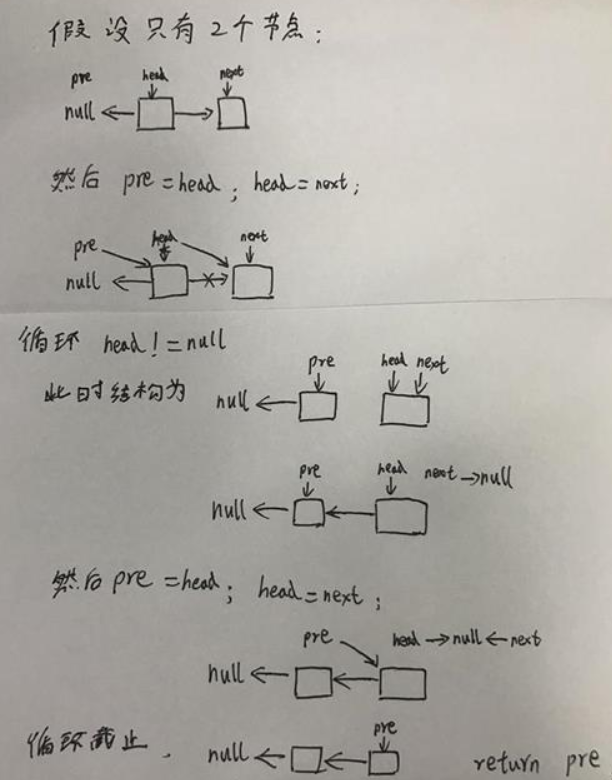 假设只有2个节点:
pre head next
null
然后 pre=head; head=next;
pre head next
null
循环 head!=null
此时结构为 null pre head next
pre head next→null
null
然后pre=head; head=next;
pre head→null←next
null
循环截止. null pre return pre